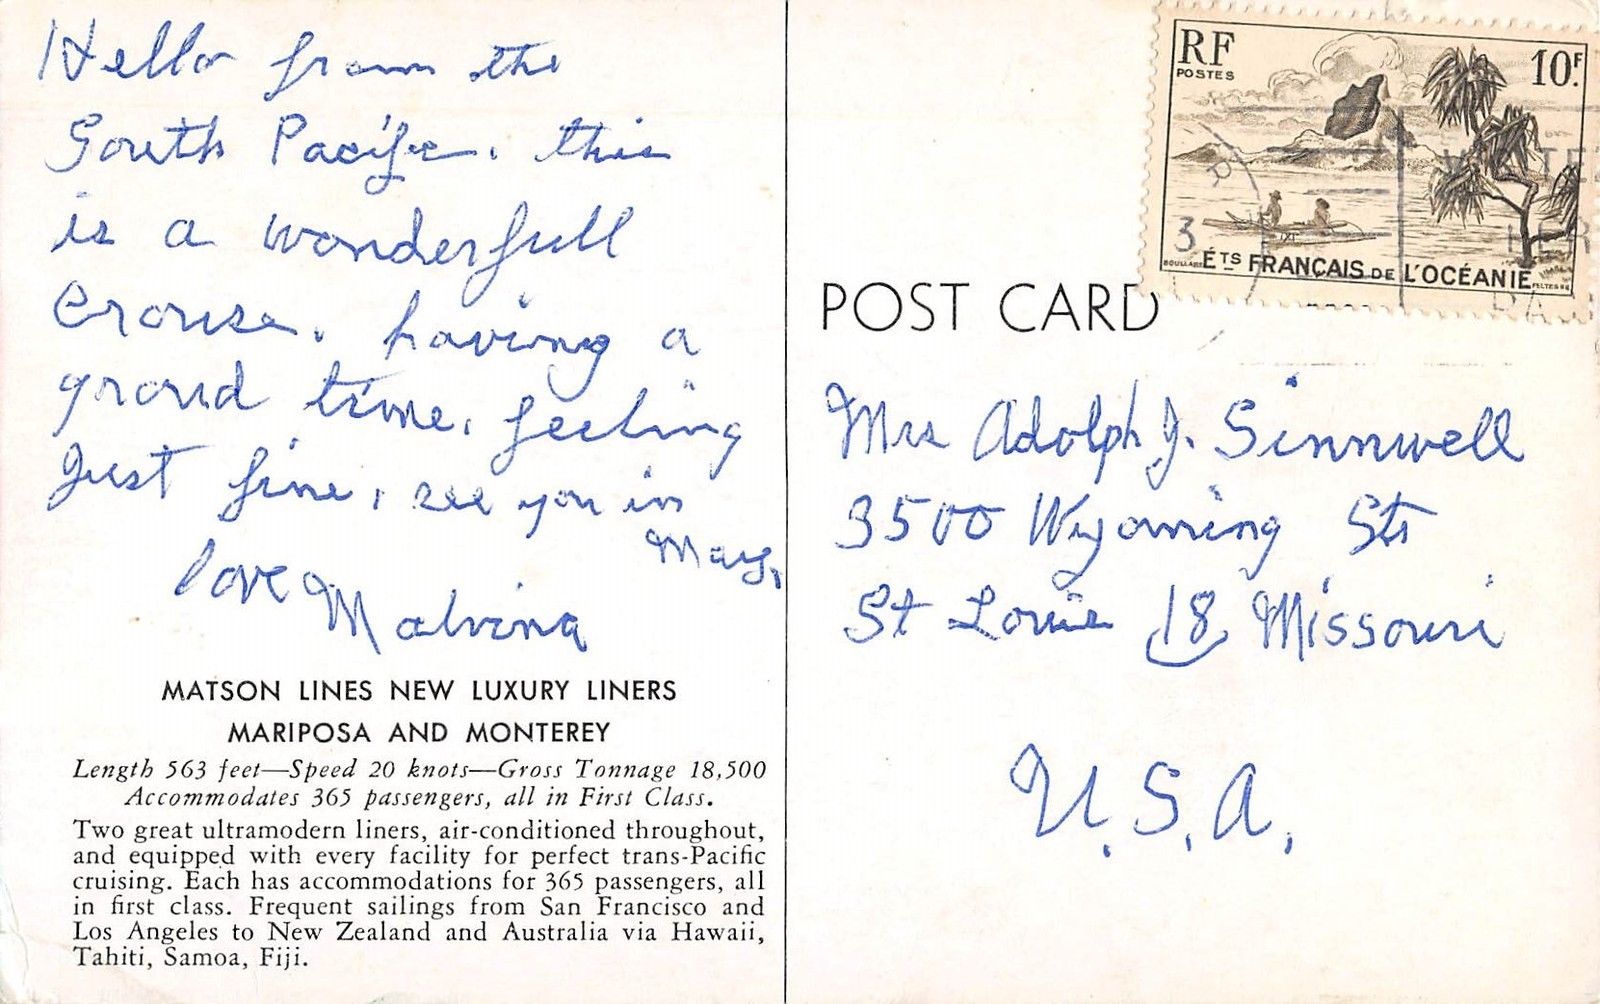 Hello from the
South Pacific. this
is a wonderfull
Crouse. having a
grand time, feeling
Just fine, see you in
May.
love Malvina
MATSON LINES NEW LUXURY LINERS
MARIPOSA AND MONTEREY
Length 563 feet—Speed 20 knots—Gross Tonnage 18,500
Accommodates 365 passengers, all in First Class.
Two great ultramodern liners, air-conditioned throughout,
and equipped with every facility for perfect trans-Pacific
cruising. Each has accommodations for 365 passengers, all
in first class. Frequent sailings from San Francisco and
Los Angeles to New Zealand and Australia via Hawaii,
Tahiti, Samoa, Fiji.
RF
POSTES
10F.
3
ÉTS FRANÇAIS DE L'OCÉANIE
POST CARD
Mrs Adolph J. Sinnwell
3500 Wyoming Sts
St Louis 18 Missouri
U.S.A.